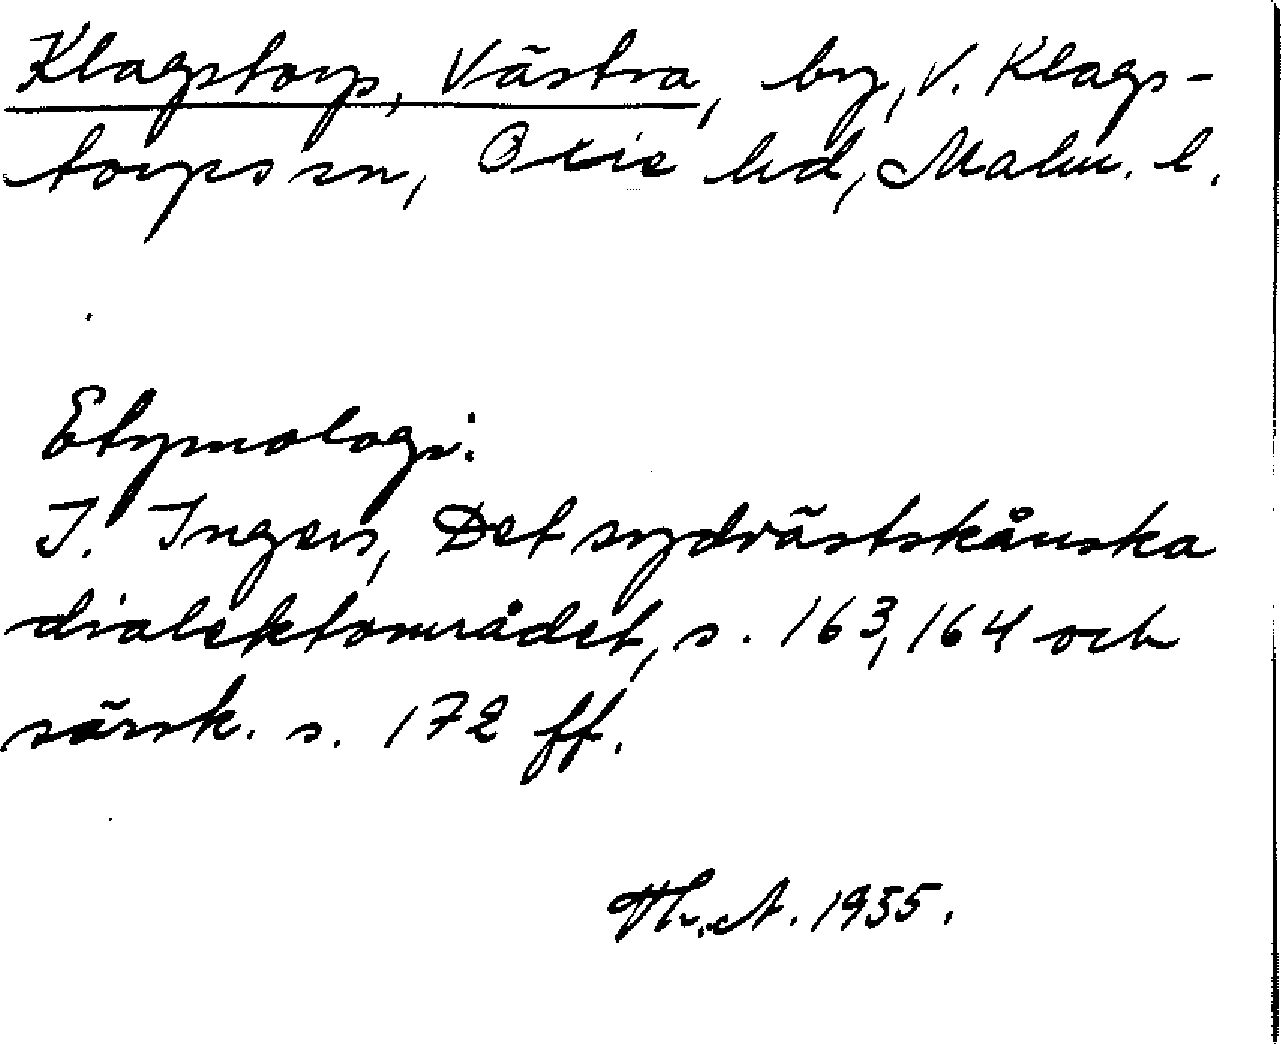 Klagstorp, Västra, by, V. Klags-
torps sn, Oxie hd, Malm. l.
Etymologi:
I. Ingers, Det sydvästskånska
dialektområdet, s. 163, 164 och
särsk. s. 172 ff.
Th. A. 1935.